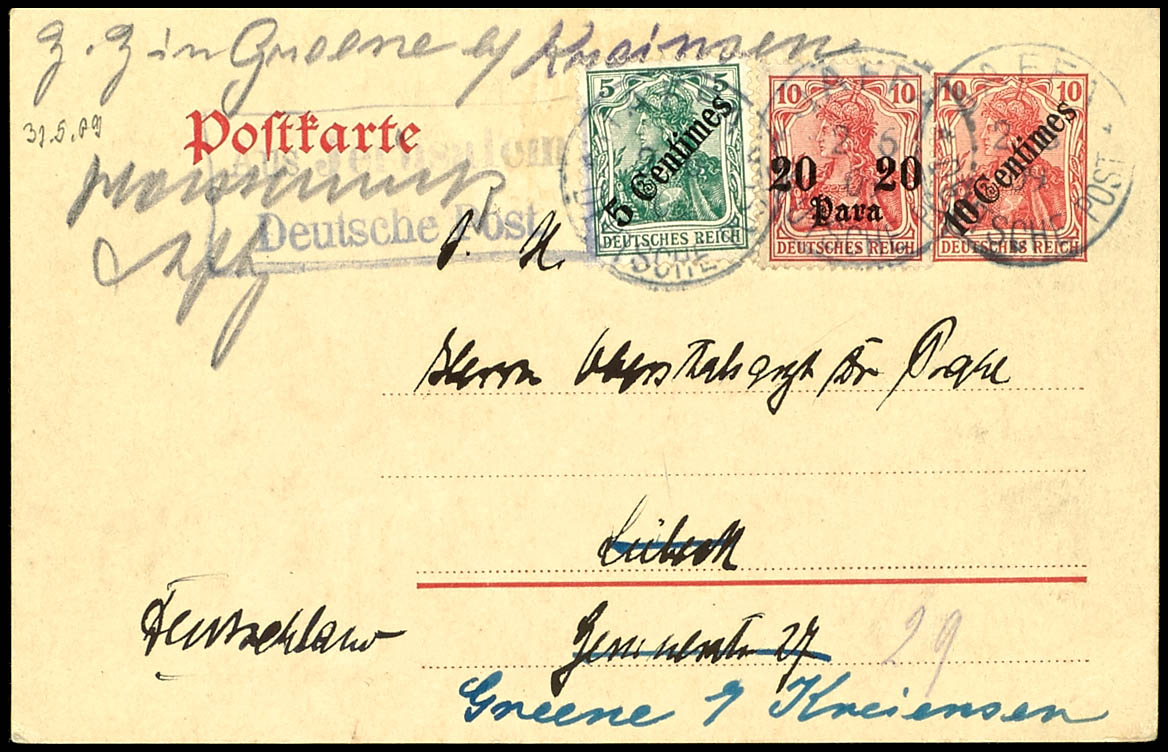 z. Z in Greene a/ Kreiensen
Postkarte
31.5.09
Aus Jerusalem
Deutsche Post
5 5
5 Centimes
DEUTSCHES REICH
10 10
20 20
Para
DEUTSCHES REICH
10 10
10 Centimes
DEUTSCHES REICH
Herrn Oberstabsarzt Dr
Lübeck
Deutschland
27
29
Greene a/ Kreiensen